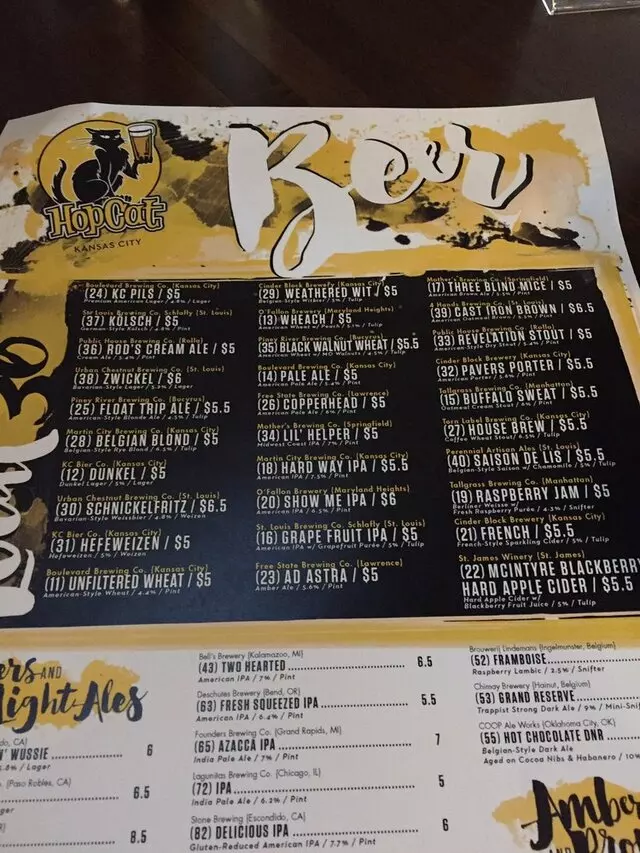 HopCat
KANSAS CITY
Beer
Local 30
Boulevard Brewing Co. (Kansas City)
(24) KC PILS / $5
Premium American Lager / 4.8% / Lager
St. Louis Brewing Co. Schlafly (St. Louis)
(37) KÖLSCH / $5
German-Style Kolsch / 4.8% / Pint
Public House Brewing Co. (Rolla)
(36) ROD'S CREAM ALE / $5
Urban Chestnut Brewing Co. (St. Louis)
(38) ZWICKEL / $6
Bavarian-Style Lager / 5.1% / Lager
Piney River Brewing Co. (Bucyrus)
(25) FLOAT TRIP ALE / $5.5
American-Style Blonde Ale / 4.5% / Tulip
Martin City Brewing Co. (Kansas City)
(28) BELGIAN BLOND / $5
Belgian-Style Rye Blond / 6.5% / Tulip
KC Bier Co. (Kansas City)
(12) DUNKEL / $5
Dunkel Lager / 5% / Lager
Urban Chestnut Brewing Co. (St. Louis)
(30) SCHNICKELFRITZ / $6.5
Bavarian-Style Weissbier / 4.8% / Weizen
KC Bier Co. (Kansas City)
(31) HEFEWEIZEN / $5
Hefeweizen / 5% / Weizen
Boulevard Brewing Co. (Kansas City)
(11) UNFILTERED WHEAT / $5
American-Style Wheat / 4.4% / Pint
Cinder Block Brewery (Kansas City)
(29) WEATHERED WIT / $5
Belgian-Style Witbier / 5% / Tulip
O'Fallon Brewery (Maryland Heights)
(13) WHEACH / $5
American Wheat w/ Peach / 5.1% / Tulip
Piney River Brewing Co. (Bucyrus)
(35) BLACK WALNUT WHEAT / $5.5
American Wheat w/ MO Walnuts / 4.5% / Tulip
Boulevard Brewing Co. (Kansas City)
(14) PALE ALE / $5
American Pale Ale / 5.4% / Pint
Free State Brewing Co. (Lawrence)
(26) COPPERHEAD / $5
American Pale Ale / 6% / Pint
Mother's Brewing Co. (Springfield)
(34) LIL' HELPER / $5
Midwest Coast IPA / 7% / Pint
Martin City Brewing Co. (Kansas City)
(18) HARD WAY IPA / $5.5
American IPA / 7.5% / Pint
O'Fallon Brewery (Maryland Heights)
(20) SHOW ME IPA / $6
American IPA / 6.5% / Pint
St. Louis Brewing Co. Schlafly (St. Louis)
(16) GRAPE FRUIT IPA / $5
American IPA w/ Grapefruit Purée / 5% / Tulip
Free State Brewing Co. (Lawrence)
(23) AD ASTRA / $5
Amber Ale / 5.6% / Pint
Mother's Brewing Co. (Springfield)
(17) THREE BLIND MICE / $5
American Brown Ale / 5.5% / Pint
4 Hands Brewing Co. (St. Louis)
(39) CAST IRON BROWN / $6.5
American Oatmeal Brown / 5.5% / Pint
Public House Brewing Co. (Rolla)
(33) REVELATION STOUT / $5
American-Style Dry Stout / 5.4% / Pint
Cinder Block Brewery (Kansas City)
(32) PAVERS PORTER / $5.5
American Porter / 5.6% / Pint
Tallgrass Brewing Co. (Manhattan)
(15) BUFFALO SWEAT / $5.5
Oatmeal Cream Stout / 5% / Pint
Torn Label Brewing Co. (Kansas City)
(27) HOUSE BREW / $5.5
Coffee Wheat Stout / 6.5% / Tulip
Perennial Artisan Ales (St. Louis)
(40) SAISON DE LIS / $5.5
Belgian-Style Saison w/ Chamomile / 5% / Tulip
Tallgrass Brewing Co. (Manhattan)
(19) RASPBERRY JAM / $5
Berliner Weisse w/
Fresh Raspberry Purée / 4.3% / Snifter
Cinder Block Brewery (Kansas City)
(21) FRENCH / $5.5
French-Style Sparkling Cider / 5% / Tulip
St. James Winery (St. James)
(22) MCINTYRE BLACKBERRY
HARD APPLE CIDER / $5.5
Hard Apple Cider w/
Blackberry Fruit Juice / 5% / Tulip
ers AND
Light Ales
do, CA)
N' WUSSIE 6
/ Lager
. (Paso Robles, CA)
6.5
ger
8.5
Bell's Brewery (Kalamazoo, MI)
(43) TWO HEARTED 6.5
American IPA / 7% / Pint
Deschutes Brewery (Bend, OR)
(63) FRESH SQUEEZED IPA 5.5
American IPA / 6.4% / Pint
Founders Brewing Co. (Grand Rapids, MI)
(65) AZACCA IPA 7
India Pale Ale / 7% / Pint
Lagunitas Brewing Co. (Chicago, IL)
(72) IPA 5
India Pale Ale / 6.2% / Pint
Stone Brewing (Escondido, CA)
(82) DELICIOUS IPA 6
Gluten-Reduced American IPA / 7.7% / Pint
Brouwerij Lindemans (Ingelmunster, Belgium)
(52) FRAMBOISE
Raspberry Lambic / 2.5% / Snifter
Chimay Brewery (Hainut, Belgium)
(53) GRAND RESERVE
Trappist Strong Dark Ale / 9% / Mini-Snif
COOP Ale Works (Oklahoma City, OK)
(55) HOT CHOCOLATE DNR
Belgian-Style Dark Ale
Aged on Cocoa Nibs & Habanero / 10%
Amber
AND
Bro